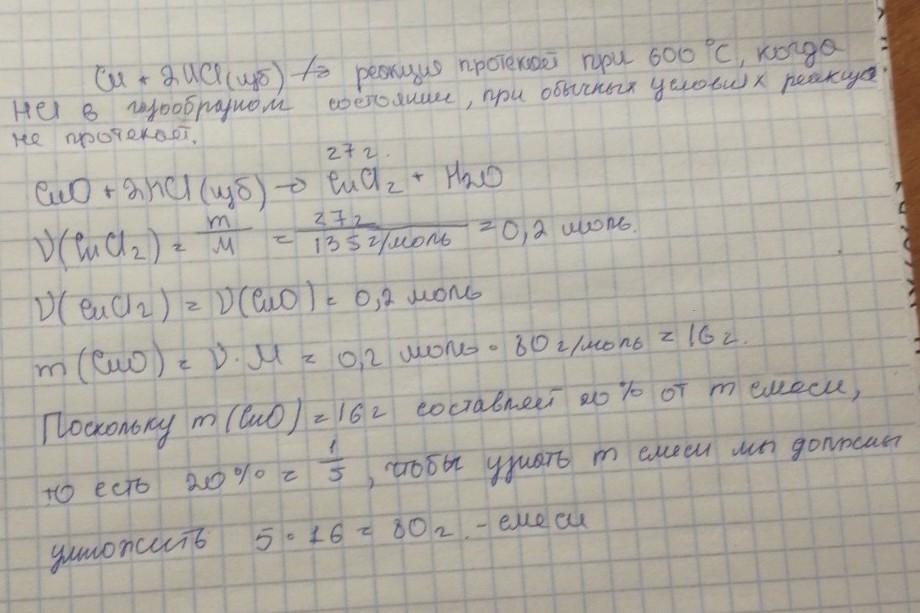 Cu + 2HCl(изб) -/-> реакция протекает при 600 °C, когда
HCl в газообразном состоянии, при обычных условиях реакция
не протекает.
27 г.
CuO + 2HCl(изб) → CuCl₂ + H₂O
ν(CuCl₂) = m/M = 27 г/135 г/моль = 0,2 моль.
ν(CuCl₂) = ν(CuO) = 0,2 моль
m(CuO) = ν · M = 0,2 моль · 80 г/моль = 16 г.
Поскольку m(CuO) = 16 г составляет 20% от m смеси,
то есть 20% = 1/5, чтобы узнать m смеси мы должны
умножить 5 · 16 = 80 г. - смеси